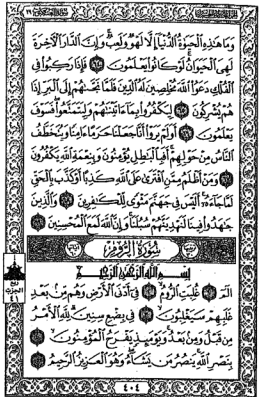 وَمَا هَٰذِهِ ٱلْحَيَوٰةُ ٱلدُّنْيَآ إِلَّا لَهْوٌ وَلَعِبٌ وَإِنَّ ٱلدَّارَ ٱلْآخِرَةَ
لَهِىَ ٱلْحَيَوَانُ لَوْ كَانُوا۟ يَعْلَمُونَ ٦٤ فَإِذَا رَكِبُوا۟ فِى
ٱلْفُلْكِ دَعَوُا۟ ٱللَّهَ مُخْلِصِينَ لَهُ ٱلدِّينَ فَلَمَّا نَجَّىٰهُمْ إِلَى ٱلْبَرِّ إِذَا
هُمْ يُشْرِكُونَ ٦٥ لِيَكْفُرُوا۟ بِمَآ ءَاتَيْنَٰهُمْ وَلِيَتَمَتَّعُوا۟ فَسَوْفَ
يَعْلَمُونَ ٦٦ أَوَلَمْ يَرَوْا۟ أَنَّا جَعَلْنَا حَرَمًا ءَامِنًا وَيُتَخَطَّفُ
ٱلنَّاسُ مِنْ حَوْلِهِمْ أَفَبِٱلْبَٰطِلِ يُؤْمِنُونَ وَبِنِعْمَةِ ٱللَّهِ يَكْفُرُونَ
٦٧ وَمَنْ أَظْلَمُ مِمَّنِ ٱفْتَرَىٰ عَلَى ٱللَّهِ كَذِبًا أَوْ كَذَّبَ بِٱلْحَقِّ
لَمَّا جَآءَهُۥٓ أَلَيْسَ فِى جَهَنَّمَ مَثْوًى لِّلْكَٰفِرِينَ ٦٨ وَٱلَّذِينَ
جَٰهَدُوا۟ فِينَا لَنَهْدِيَنَّهُمْ سُبُلَنَا وَإِنَّ ٱللَّهَ لَمَعَ ٱلْمُحْسِنِينَ ٦٩
سُورَةُ ٱلرُّومِ
بِسْمِ ٱللَّهِ ٱلرَّحْمَٰنِ ٱلرَّحِيمِ
الٓمٓ ١ غُلِبَتِ ٱلرُّومُ ٢ فِىٓ أَدْنَى ٱلْأَرْضِ وَهُم مِّنۢ بَعْدِ
غَلَبِهِمْ سَيَغْلِبُونَ ٣ فِى بِضْعِ سِنِينَ لِلَّهِ ٱلْأَمْرُ
مِن قَبْلُ وَمِنۢ بَعْدُ وَيَوْمَئِذٍ يَفْرَحُ ٱلْمُؤْمِنُونَ ٤
بِنَصْرِ ٱللَّهِ يَنصُرُ مَن يَشَآءُ وَهُوَ ٱلْعَزِيزُ ٱلرَّحِيمُ ٥
ربع
الحزب
٤١
٤٠٤